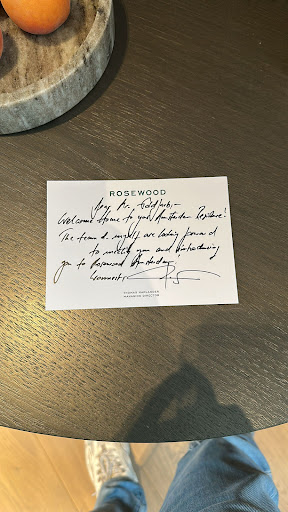 ROSEWOOD
Dear Mr.
Welcome Home to your Amsterdam Residence!
The team & myself are looking forward
to meeting you and introducing
you to Rosewood Amsterdam!
Warmest,
THOMAS
MANAGING DIRECTOR